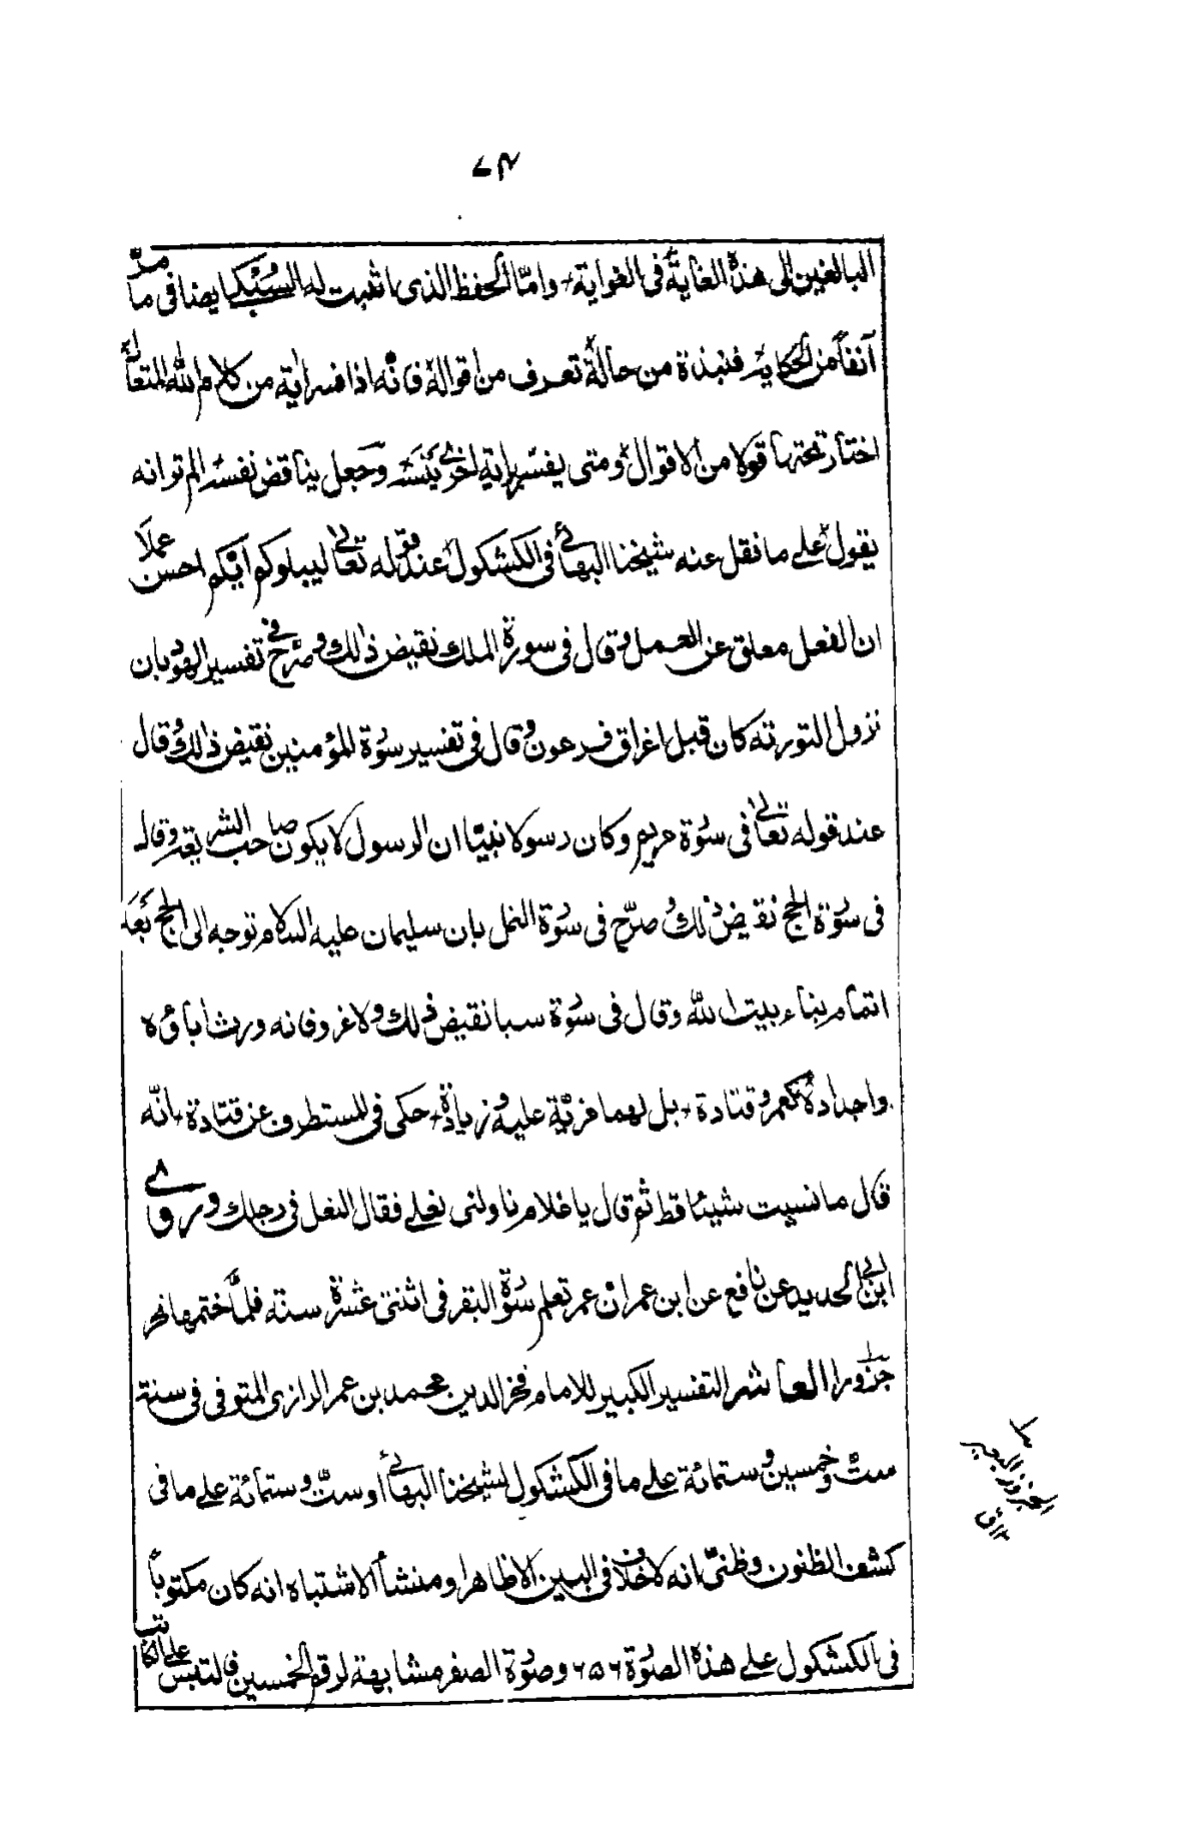 ٧٣
البالغين الى هذه الغاية فى الغواية + وامّا الحفظ الذى اثبت له السُبُكى ايضا فى ما مرّ
آنفاً من الحكاية فنبذة من حاله تعرف من اقواله فانّه اذا فسر اية من كلام الله المتعال
اختار تحتها قولا من الاقوال ومتى يفسّر باية اخرى يَنسَه وجعل يناقض نفسه الم تر انه
يقول على ما نقل عنه شيخنا البهائى فى الكشكول عند قوله تعالى ليبلوكم ايّكم احسن عملاً
ان الفعل معلق عن العمل وقال فى سورة الملك نقيض ذالك وصرّح فى تفسير الهود بان
نزول التورته كان قبل اغراق فرعون وقال فى تفسير سورة المؤمنين نقيض ذالك وقال
عند قوله تعالى فى سورة مريم وكان رسولا نبيّا ان الرسول لا يكون صاحب الشريعة وقال
فى سورة الحج نقيض ذلك وصرّح فى سورة النمل بان سليمان عليه السلام توجه الى الحج بَعد
اتمام بناء بيت الله وقال فى سورة سبا نقيض ذلك ولا غرو فانه ورث اباؤه
واجداده كعمر وقتادة + بل لهما مزيّة عليه وزيادة + حكى فى المستطرف عن قتادة + انّه
قال ما نسيت شيئا قط ثم قال يا غلام ناولنى نعلى فقال النعل فى رجلك وروى
ابن ابى الحديد عن نافع عن ابن عمر ان عمر تعلم سورة البقر فى اثنتى عشرة سنة فلمّا ختمها نحر
جزورا العاشر التفسير الكبير للامام فخر الدين محمد بن عمر الرازى المتوفى فى سنة
ستّ وخمسين وستمائة على ما فى الكشكول لشيخنا البهائى أو ستّ وستمائة على ما فى
كشف الظنون وظنّى انه لا خلاف فى البين الا ظاهرا ومنشأ الاشتباه انه كان مكتوباً
فى الكشكول على هذه الصورة ٦٥٦ وصورة الصفر مشابهة لرقم الخمسين فالتبس على الكاتب
الجزور البعير